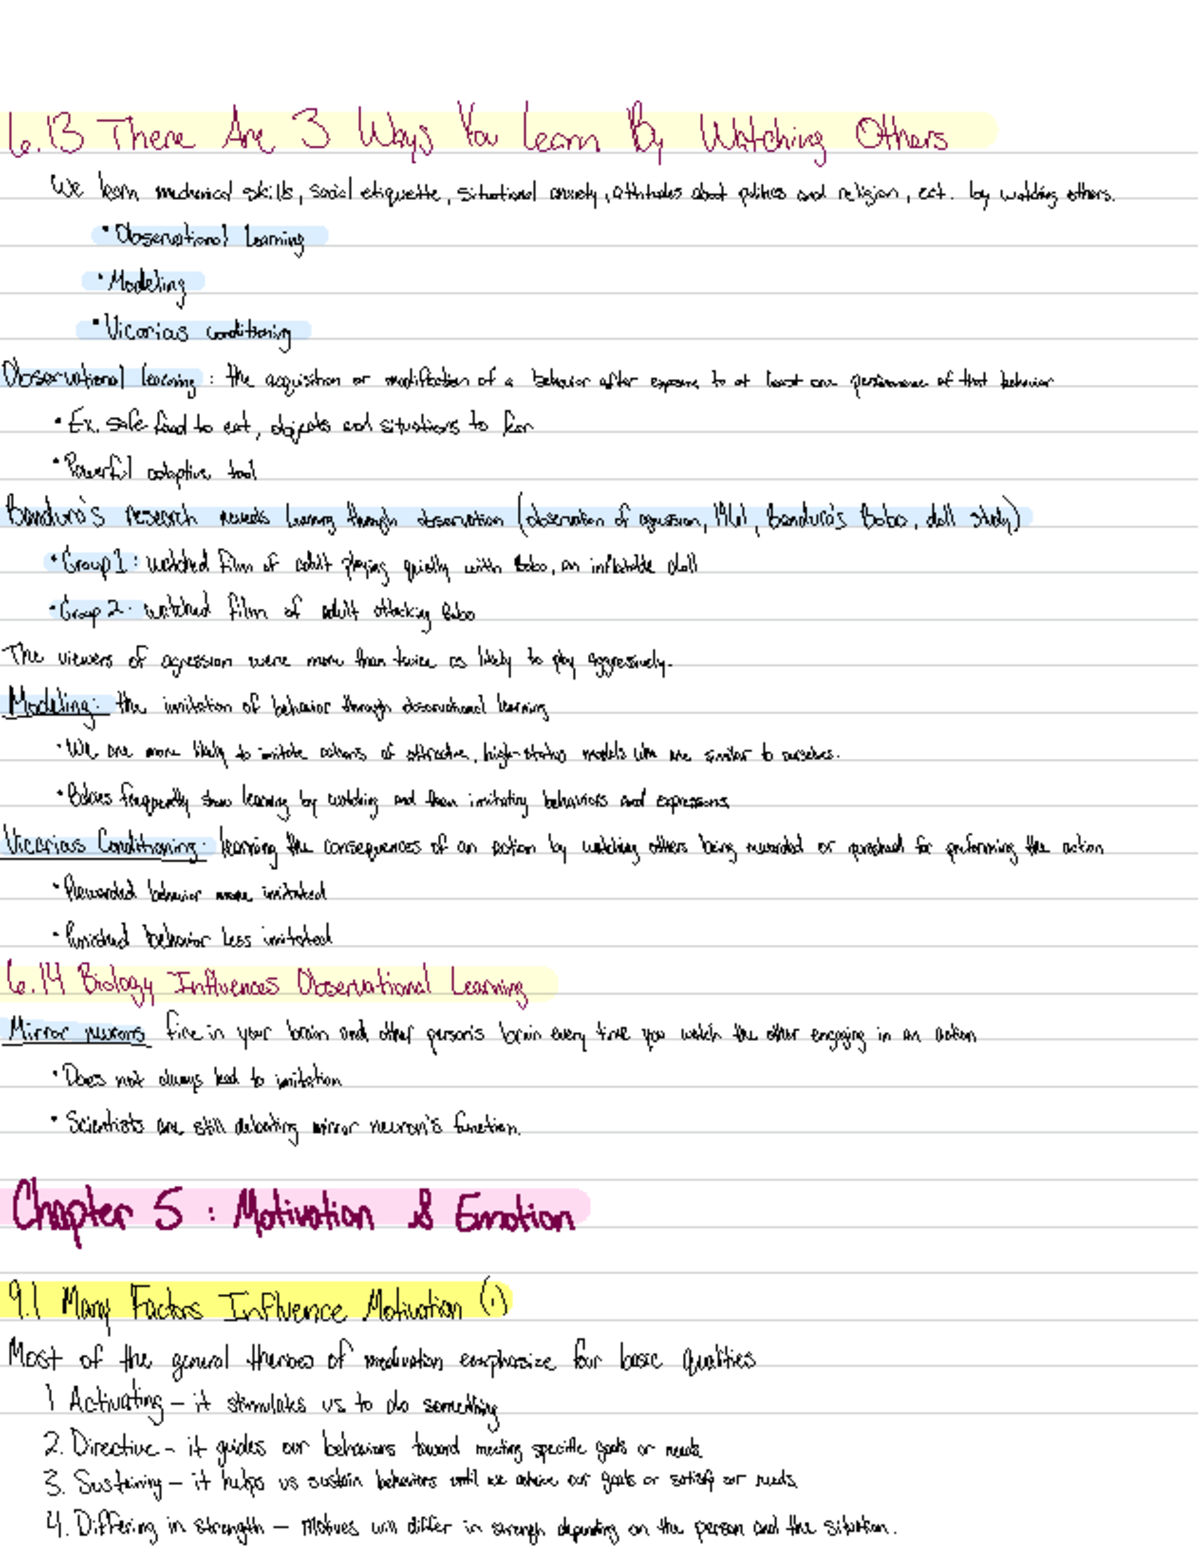 6.13 There Are 3 Ways You Learn By Watching Others
We learn mechanical skills, social etiquette, situational anxiety, attitudes about politics and religion, ect. by watching others.
• Observational learning
• Modeling
• Vicarious conditioning
Observational learning: the acquisition or modification of a behavior after exposure to at least one performance of that behavior
• Ex. safe food to eat, objects and situations to fear
• Powerful adaptive tool
Bandura's research reveals learning through observation (observation of agression, 1961, Bandura's Bobo, doll study)
• Group 1: watched film of adult playing quietly with Bobo, an inflatable doll
• Group 2: watched film of adult attacking Bobo
The viewers of agression were more than twice as likely to play aggressively.
Modeling: the imitation of behavior through observational learning
• We are more likely to imitate of attractive, high-status models who are similar to ourselves.
• Babies frequently show learning by watching and then imitating behaviors and expressions
Vicarious Conditioning: learning the consequences of an action by watching others being rewarded or punished for preforming the action
• Rewarded behavior more imitated
• Punished behavior less imitated
6.14 Biology Influences Observational Learning
Mirror neurons fire in your brain and other person's brain every time you watch the other engaging in an action
• Does not always lead to imitation
• Scientists are still debating mirror neuron's function.
Chapter 5: Motivation & Emotion
9.1 Many Factors Influence Motivation (1)
Most of the general of motivation emphasize four basic qualities
1 Activating – it stimulates us to do something
2. Directive – it guides our behaviors toward meeting specific goals or needs
3. Sustaining – it helps us sustain behaviors until we achieve our goals or satisfy our needs
4. Differing in strength – Motives will differ in strength depending on the person and the situation.